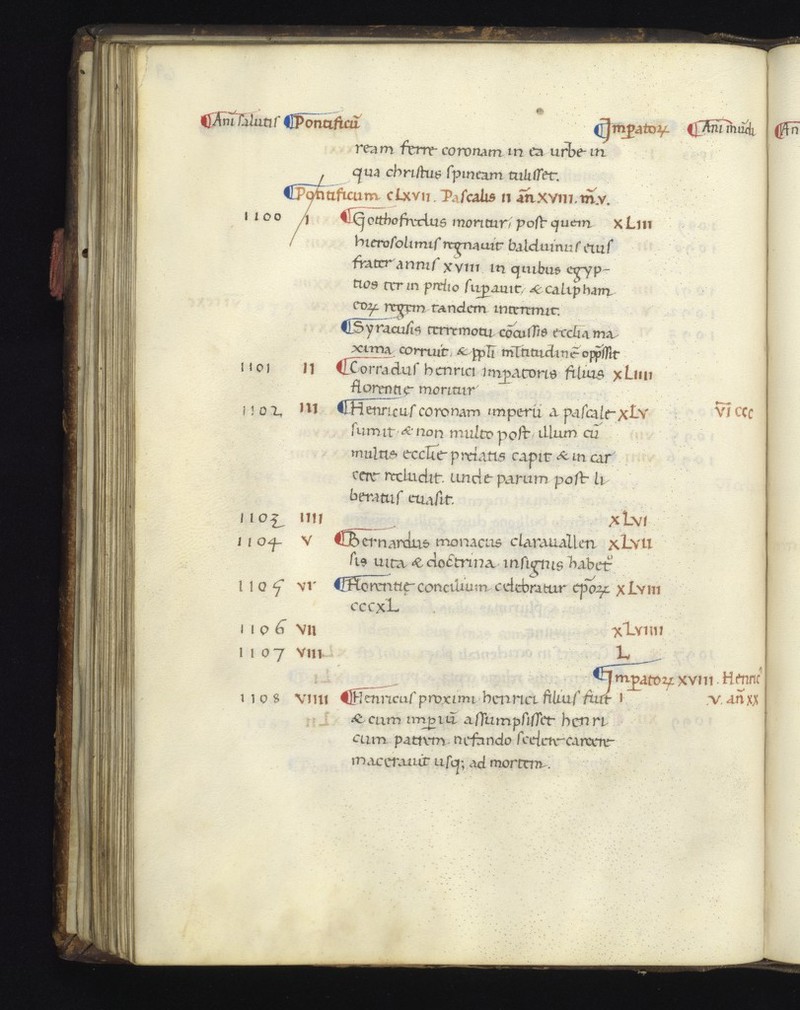 Anī salutis Pontificū Impatoꝝ Anī mūdi
ream ferre coronam in ea urbe in
qua christus spineam tulisset.
Pontificum cLxvii. Pascalis ii añ xviii. m̄ v.
1100 i Gotthofredus moritur, post quem xLiii
hierosolimis regnauit balduinus eius
frater annis xviii in quibus egyp-
tios ter in prelio supauit, & calipham
eoꝝ regem tandem interemit.
Syracusis terremotu cōcussis ecclia ma
xima corruit, & ppli mltitudinē opp̄ssit
1101 ii Corradus henrici impatoris filius xLiiii
florentie moritur
1102 iii Henricus coronam imperii a pascale xLv v̄i ccc
sumit & non multo post illum cū
multis ecclie prelatis capit & in car
cere recludit. unde parum post li
beratus euasit.
1103 iiii xLvi
1104 v Bernardus monacus clarauallen xLvii
sis uita & doctrina insignis habet᷒
1105 vi Florentie concilium celebratur ep̄oꝝ xLviii
cccxL
1106 vii xLviiii
1107 viii L
Impatoꝝ xviii. Henric᷒
1108 viiii Henricus proximi henrici filius fuit i v. añ xx
& cum impiū assumpsisset henri
cum patrem nefando scelere carcere
macerauit usq; ad mortem.